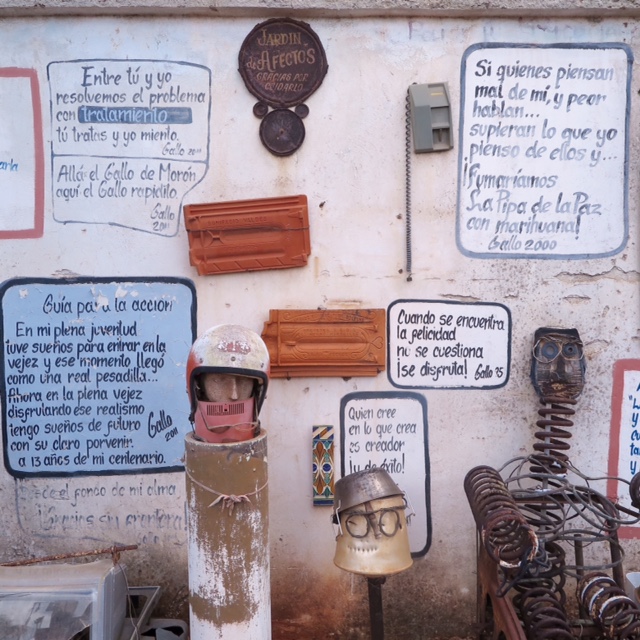 JARDIN
de AFECTOS
GRACIAS POR
CUIDARLO
Entre tú y yo
resolvemos el problema
con tratamiento
tú tratas y yo miento.
Gallo 2011
Allá: el Gallo de Morón
aquí el Gallo rapidito.
Gallo
2011
Si quienes piensan
mal de mí, y peor
hablan...
supieran lo que yo
pienso de ellos y...
¡Fumaríamos
La Pipa de la Paz
con marihuana!
Gallo 2000
Guía para la acción
En mi plena juventud
tuve sueños para entrar en la
vejez y ese momento llegó
como una real pesadilla...
Ahora en la plena vejez
disfrulando ese realismo
tengo sueños de futuro
con su claro porvenir
a 13 años de mi centenario.
Gallo
2011
Cuando se encuentra
la felicidad
no se cuestiona
¡se disfruta! Gallo
Quien cree
en lo que crea
es creador
¡y de éxito!
el fondo de mi alma
¡Gracias